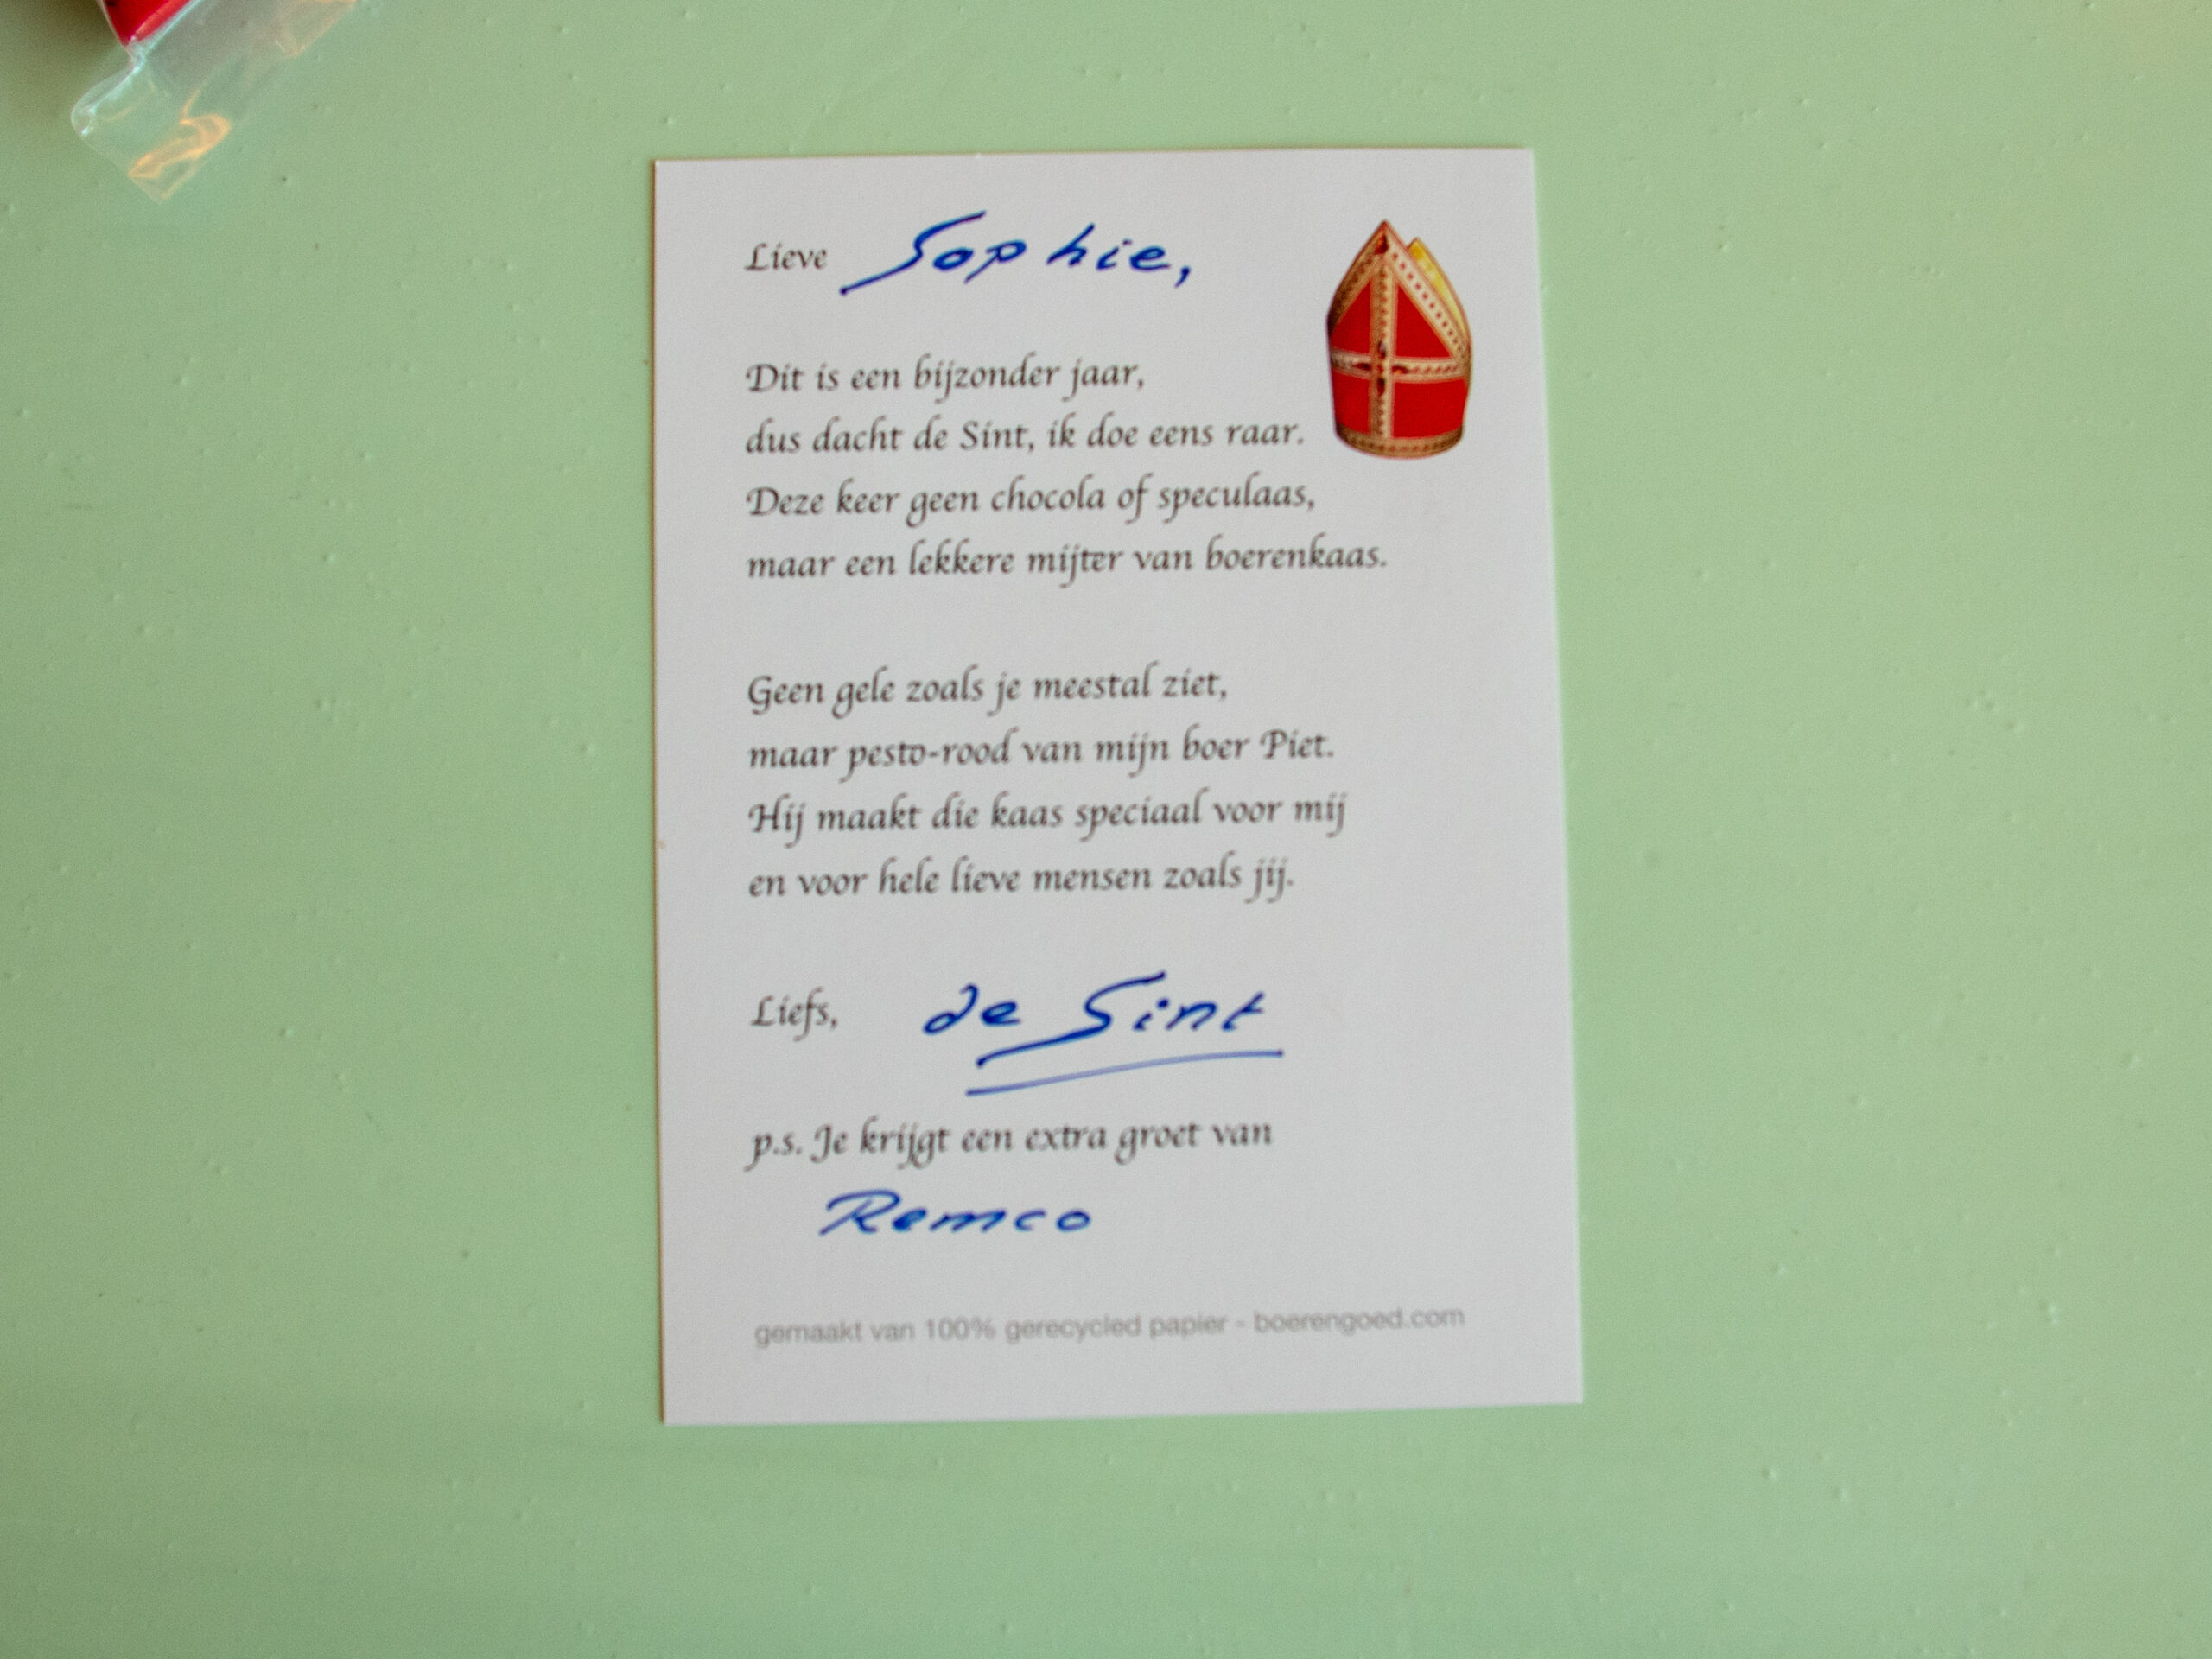 Lieve Sophie,
Dit is een bijzonder jaar,
dus dacht de Sint, ik doe eens raar.
Deze keer geen chocola of speculaas,
maar een lekkere mijter van boerenkaas.
Geen gele zoals je meestal ziet,
maar pesto-rood van mijn boer Piet.
Hij maakt die kaas speciaal voor mij
en voor hele lieve mensen zoals jij.
Liefs, de Sint
p.s. Je krijgt een extra groet van
Remco
gemaakt van 100% gerecycled papier - boerengoed.com